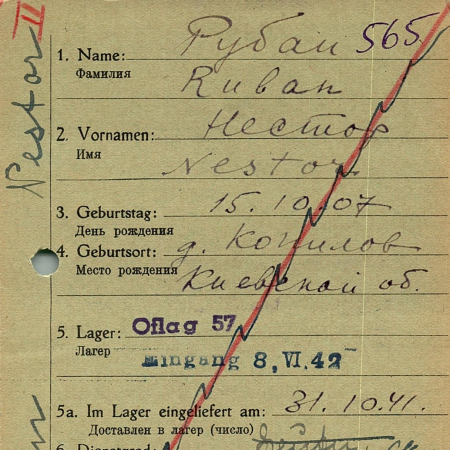 II
565
Nestor
1. Name: Рубан
Фамилия Ruban
2. Vornamen: Нестор
Имя
Nestor
3. Geburtstag: 15.10.07
День рождения
4. Geburtsort: д. Копилов
Место рождения Киевской об.
5. Lager: Oflag 57
Лагер
Eingang 8. VI. 42
5a. Im Lager eingeliefert am: 31.10.41.
Доставлен в лагер (число)
6. Dienstgrad: